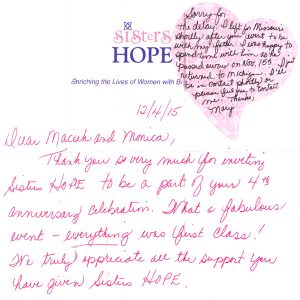 SISTERS
HOPE
Enriching the Lives of Women with B
Sorry for
the delay. I left for Missouri
shortly after your event to be
with my father. I was happy to
spend time with him as he
passed away on Nov. 15th. I just
returned to Michigan. I'll
be in contact shortly or
please feel free to contact
me. Thanks,
Mary
12/4/15
Dear Macuh and Monica,
Thank you so very much for inviting
Sisters HOPE to be a part of your 4th
anniversary celebration. What a fabulous
event - everything was first class!
We truly appreciate all the support you
have given Sisters HOPE.